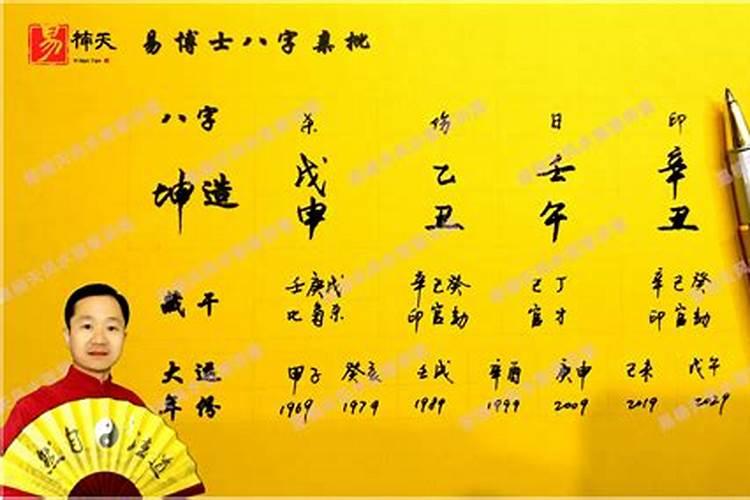 易 楠天 易博士八字案批
八字 杀 伤 日 印
坤造 戊 乙 壬 辛
申 丑 午 丑
藏干 壬庚戊 辛己癸 己丁 辛己癸
比枭杀 印官劫 官才 印官劫
大运 甲子 癸亥 壬戌 辛酉 庚申 己未 戊午
年份 1969 1979 1989 1999 2009 2019 2029
道法自然